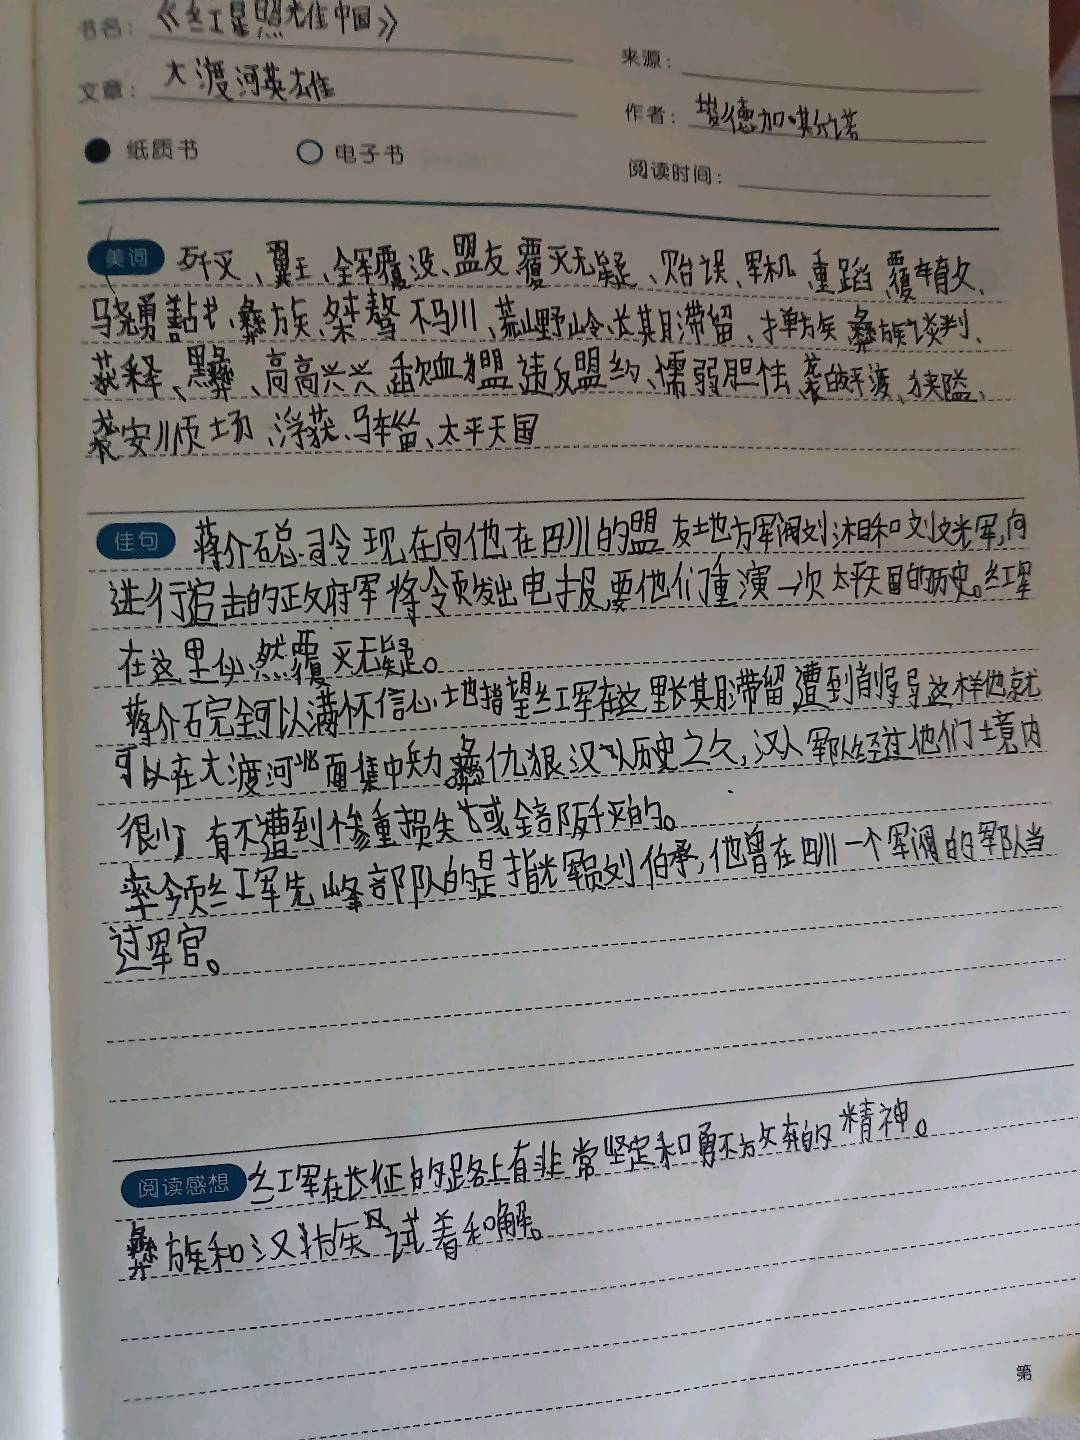 书名：《红星照耀中国》
来源：
文章：大渡河英雄
作者：埃德加·斯诺
纸质书 电子书
阅读时间：
美词 歼灭、翼王、全军覆没、盟友 覆灭无疑、贻误、军机 重蹈 覆辙、
骁勇善战、彝族、桀骜不驯、荒山野岭、长期滞留、掸族 彝族谈判、
获释、黑彝、高高兴兴 歃血为盟 违反盟约、懦弱胆怯 渡、狭隘、
袭安顺场、俘获、太平天国
佳句 蒋介石总司令现在向他在四川的盟友地方军阀刘湘和刘文光军，向
进行追击的政府军将领发出电报要他们重演一次太平天国的历史。红军
在这里似然覆灭无疑。
蒋介石完全可以满怀信心地指望红军在这里长期滞留，遭到削弱 这样他就
可以在大渡河北面集中兵力。彝仇狠汉人历史之久，汉人军队经过他们境内
很少 有不遭到惨重损失或全部歼灭的。
率领红军先峰部队的是指 员刘伯承，他曾在四川一个军阀的军队当
过军官。
阅读感想 红军在长征的路上有非常坚定和勇 的精神。
彝族和汉族 试着和解。
第